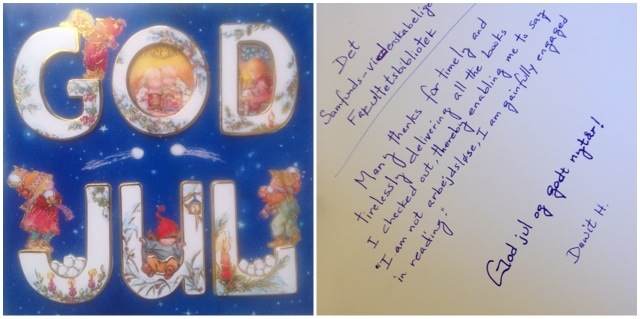 GOD
JUL
Det
Samfunds-videnskabelige
Fakultetsbibliotek
Many thanks for timely and
tirelessly delivering all the books
I checked out, thereby enabling me to say
"I am not arbejdsløse, I am gainfully engaged
in reading!
God jul og godt nytår!
Dawit H.